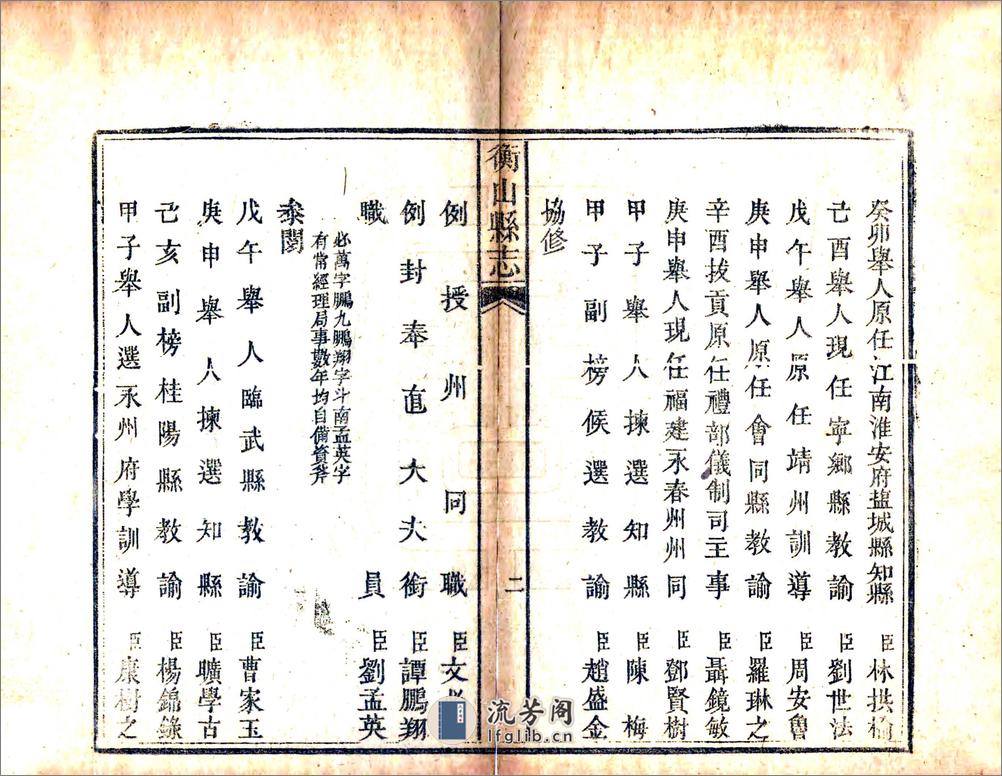 癸卯舉人原任江南淮安府盐城縣知縣 臣林拱
己酉舉人現任寧鄉縣教諭 臣劉世法
戊午舉人原任靖州訓導 臣周安魯
庚申舉人原任會同縣教諭 臣羅琳之
辛酉拔貢原任禮部儀制司主事 臣聶鏡敏
庚申舉人現任福建永春州州同 臣鄧賢樹
甲子舉人揀選知縣 臣陳梅
甲子副榜候選教諭 臣趙盛金
協修
衡山縣志
二
例授州同職 臣文
例封奉直大夫銜 臣譚鵬翔
職員 臣劉孟英
必萬字鵬九鵬翔字斗南孟英字
有常經理局事數年均自備資斧
叅閱
戊午舉人臨武縣教諭 臣曹家玉
庚申舉人揀選知縣 臣曠學古
己亥副榜桂陽縣教諭 臣楊錦錄
甲子舉人選永州府學訓導 臣康樹之
流芳阁
lfglib.cn